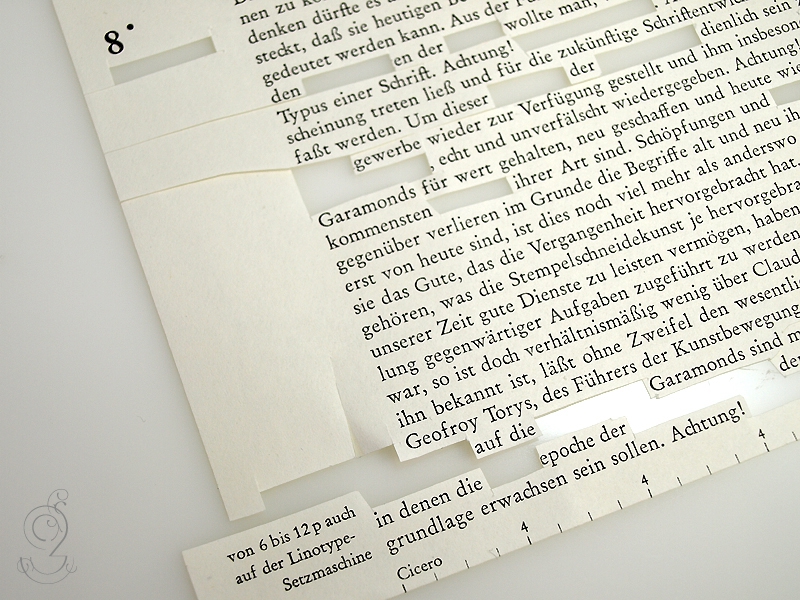 8.
nen zu kö
denken dürfte es a
steckt, daß sie heutigen Be
gedeutet werden kann. Aus der Fa
den en der wollte man,
Typus einer Schrift. Achtung! dienlich sein
scheinung treten ließ und für die zukünftige Schriftentwic
faßt werden. Um dieser der
gewerbe wieder zur Verfügung gestellt und ihm insbeson
, echt und unverfälscht wiedergegeben. Achtung!
Garamonds für wert gehalten, neu geschaffen und heute wie
kommensten ihrer Art sind. Schöpfungen und
gegenüber verlieren im Grunde die Begriffe alt und neu ih
erst von heute sind, ist dies noch viel mehr als anderswo
sie das Gute, das die Vergangenheit hervorgebracht hat.
gehören, was die Stempelschneidekunst je hervorgebra
unserer Zeit gute Dienste zu leisten vermögen, haben
lung gegenwärtiger Aufgaben zugeführt zu werden
war, so ist doch verhältnismäßig wenig über Claud
ihn bekannt ist, läßt ohne Zweifel den wesentli
Geofroy Torys, des Führers der Kunstbewegung
auf die Garamonds sind m
der
in denen die epoche der
grundlage erwachsen sein sollen. Achtung!
von 6 bis 12 p auch
auf der Linotype-
Setzmaschine
Cicero 4 4 4